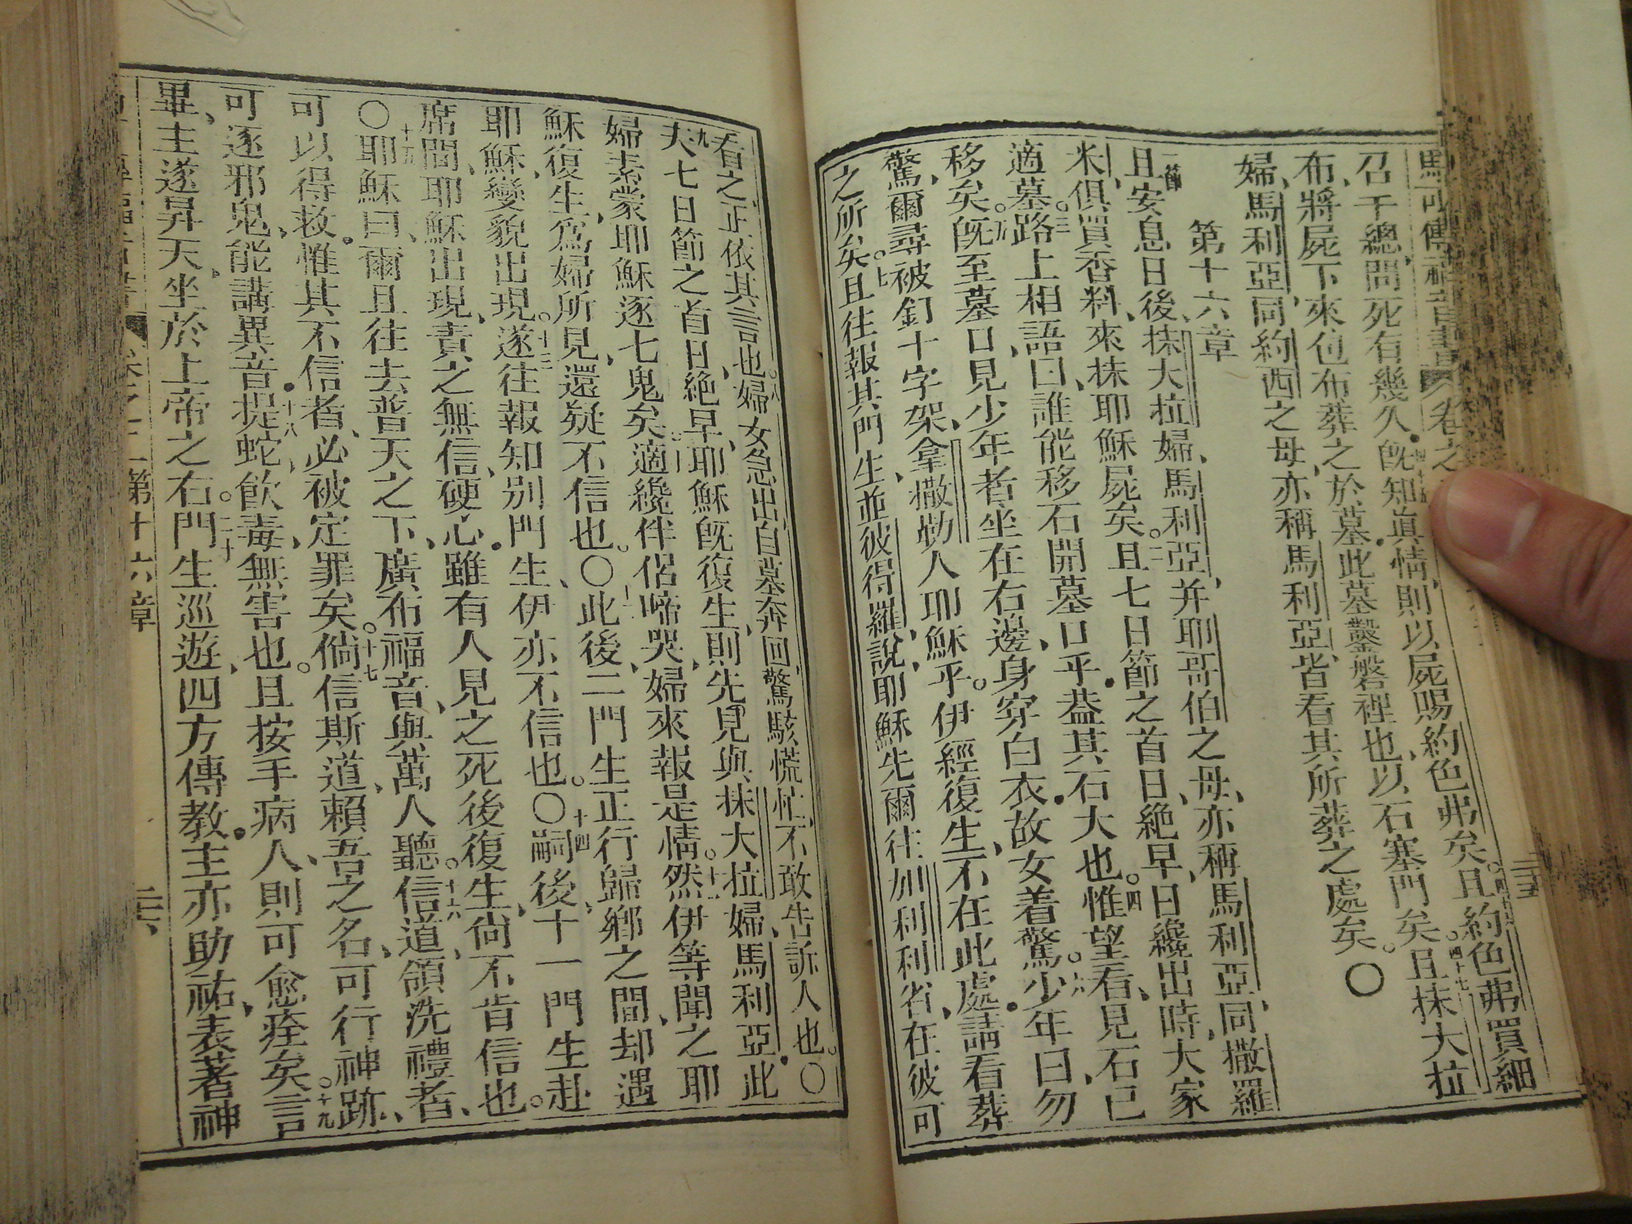 馬可傳福音書 卷之
召千總問死有幾久既知眞情則以屍賜約色弗矣且約色弗買細
布將屍下來包布葬之於墓此墓鑿磐裡也以石塞門矣四十七且抹大拉
婦馬利亞同約西之母亦稱馬利亞省看其所葬之處矣〇
第十六章
一節且安息日後抹大拉婦馬利亞并耶哥伯之母亦稱馬利亞同撒羅
米俱買香料來抹耶穌屍矣二且七日節之首日絶早日纔出時大家
適墓三路上相語曰誰能移石開墓口乎葢其石大也四惟望看見石已
移矣五既至墓口見少年者坐在右邊身穿白衣故女着驚六少年曰勿
驚爾尋被釘十字架拿撒勒人耶穌乎伊經復生不在此處請看葬
之所矣七且往報其門生並彼得羅說耶穌先爾往加利利省在彼可
看之正依其言也八婦女急出自墓奔回驚駭慌忙不敢告訴人也〇
九夫七日節之首日絶早耶穌既復生則先見與抹大拉婦馬利亞此
婦素蒙耶穌逐七鬼矣十適纔伴侶啼哭婦來報是情十一然伊等聞之耶
穌復生爲婦所見還疑不信也〇十二此後二門生正行歸鄕之間却遇
耶穌變貌出現十三遂往報知別門生伊亦不信也〇十四嗣後十一門生赴
席間耶穌出現責之無信硬心雖有人見之死後復生尙不肯信也
〇十五耶穌曰爾且往去普天之下廣布福音與萬人聽十六信道領洗禮者
可以得救惟其不信者必被定罪矣十七倘信斯道賴吾之名可行神跡
可逐邪鬼能講異音十八提蛇飮毒無害也且按手病人則可愈痊矣〇十九言
畢主遂昇天坐於上帝之右二十門生巡遊四方傳教主亦助祐表著神
卷之二第十六章 二十六